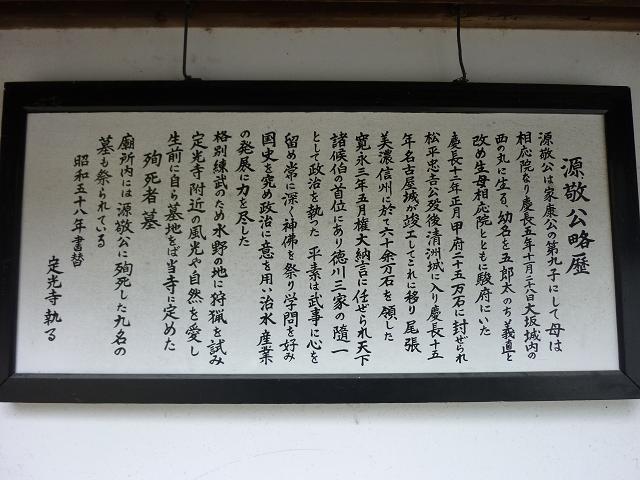 源敬公略歴
源敬公は家康公の第九子にして母は
相応院なり慶長五年十月二十八日大坂城内の
西の丸に生る、幼名を五郎太のち義直と
改め生母相応院とともに駿府にいた
慶長十二年正月甲府二十五万石に封ぜられ
松平忠吉公歿後清洲城に入り慶長十五
年名古屋城が竣工してこれに移り尾張
美濃信州に於て六十余万石を領した
寛永三年五月權大納言に任ぜられ天下
諸候伯の首位にあり徳川三家の隨一
として政治を執った 平素は武事に心を
留め常に深く神佛を祭り学問を好み
国史を究め政治に意を用い治水産業
の発展に力を尽した
格別練武のため水野の地に狩猟を試み
定光寺附近の風光や自然を愛し
生前に自ら墓地をば当寺に定めた
殉死者墓
廟所内には源敬公に殉死した九名の
墓も祭られている
昭和五十八年書替
定光寺執る